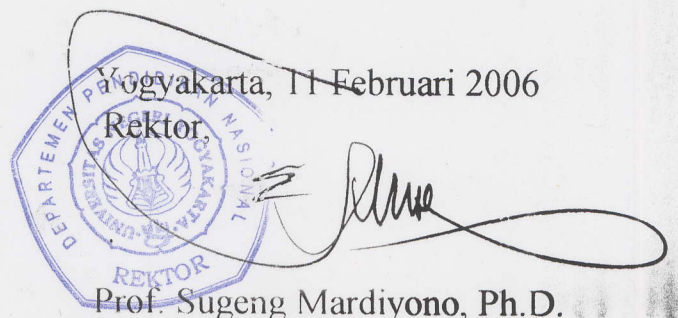 Yogyakarta, 11 Februari 2006
Rektor,
DEPARTEMEN PENDIDIKAN NASIONAL
UNIVERSITAS NEGERI YOGYAKARTA
REKTOR
Prof. Sugeng Mardiyono, Ph.D.